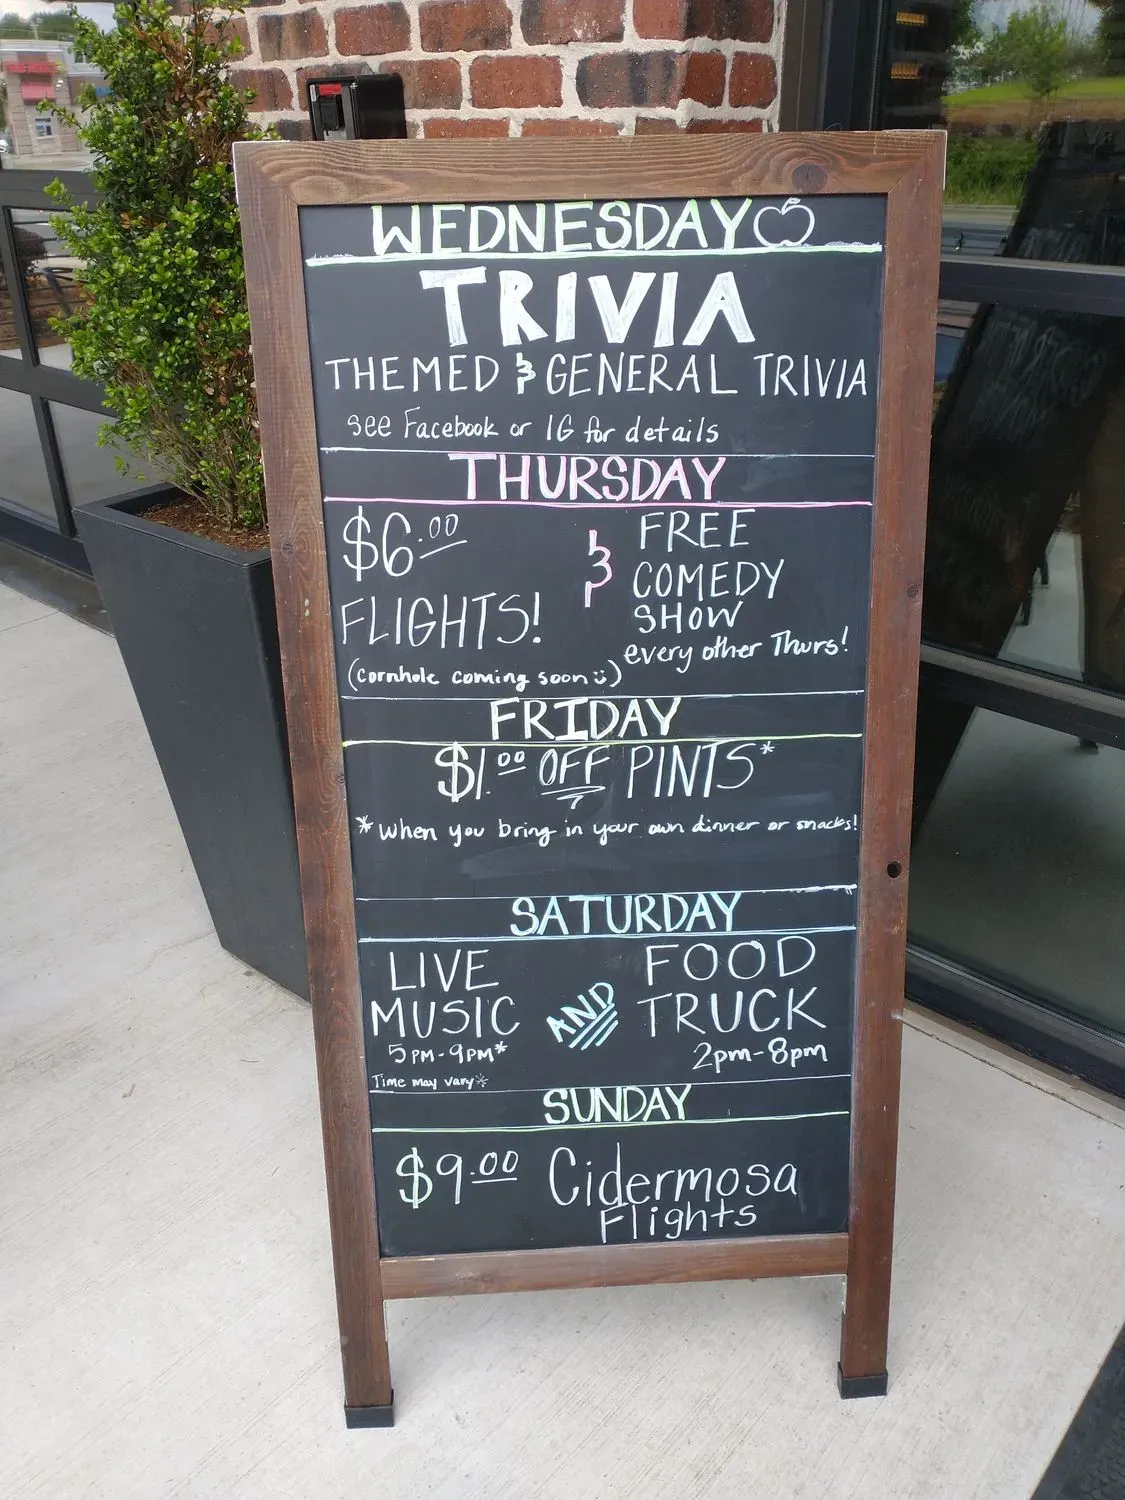 WEDNESDAY
TRIVIA
THEMED & GENERAL TRIVIA
see Facebook or IG for details
THURSDAY
$6.00
FLIGHTS!
(cornhole coming soon :))
&
FREE
COMEDY
SHOW
every other Thurs!
FRIDAY
$1.00 OFF PINTS*
*When you bring in your own dinner or snacks!
SATURDAY
LIVE
MUSIC
5PM-9PM*
Time may vary*
AND
FOOD
TRUCK
2pm-8pm
SUNDAY
$9.00 Cidermosa
Flights